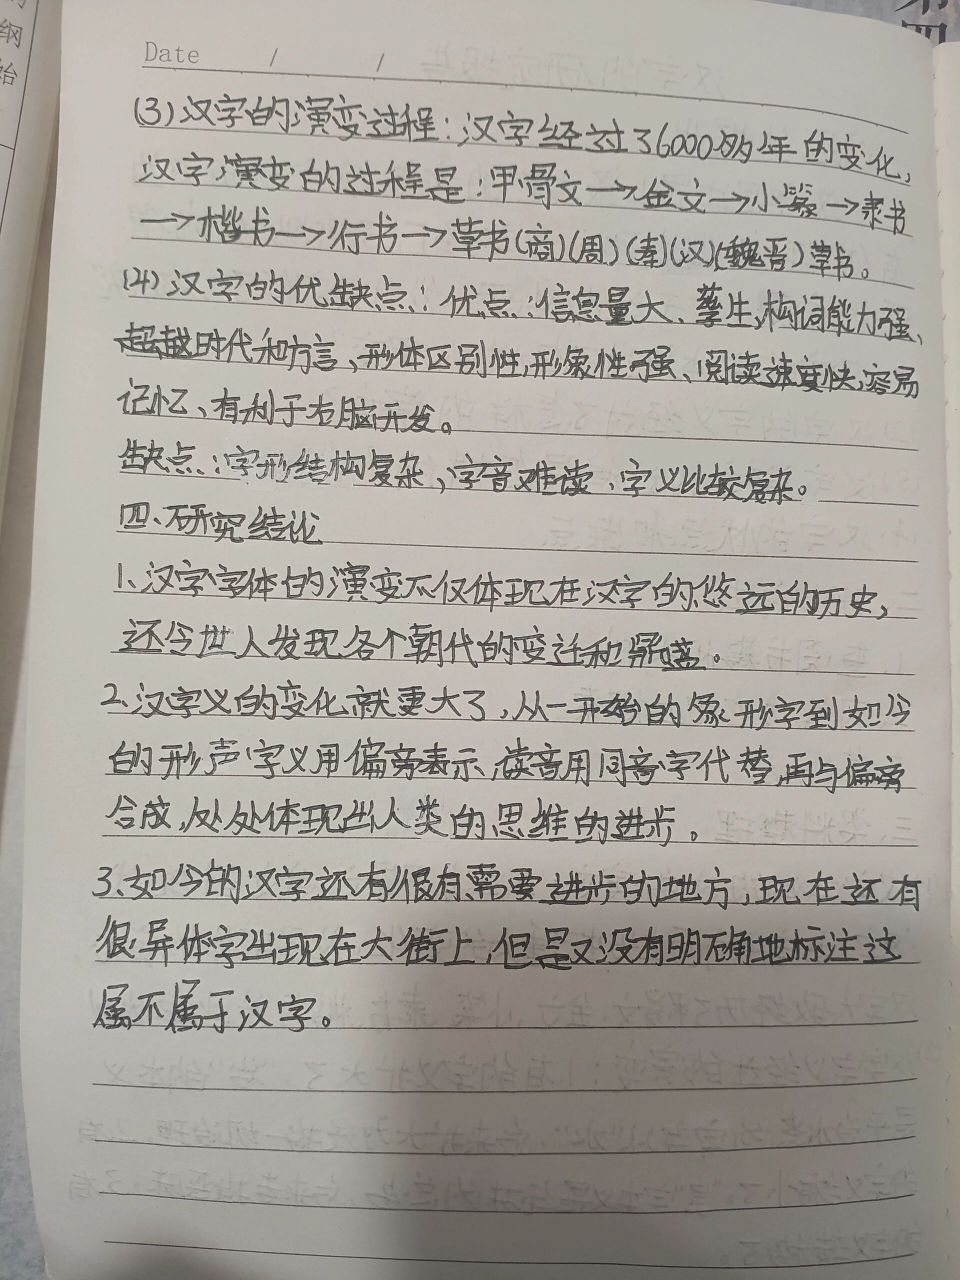 纲
始
Date / /
(3)汉字的演变过程:汉字经过了6000多年的变化,
汉字演变的过程是:甲骨文→金文→小篆→隶书
→楷书→行书→草书(商)(周)(秦)(汉)(魏晋)草书。
(4)汉字的优缺点:优点:信息量大、孳生,构词能力强、
超越时代和方言、形体区别性,形象性强、阅读速度快,容易
记忆、有利于右脑开发。
缺点:字形结构复杂、字音难读、字义比较复杂。
四、研究结论
1、汉字字体的演变不仅体现在汉字的悠远的历史,
还令世人发现各个朝代的变迁和鼎盛。
2、汉字义的变化就更大了,从一开始的象形字到如今
的形声字义用偏旁表示,读音用同音字代替,再与偏旁
合成,处处体现出人类的思维的进步。
3、如今的汉字还有很有需要进步的地方,现在还有
很异体字出现在大街上,但是又没有明确地标注这
属不属于汉字。